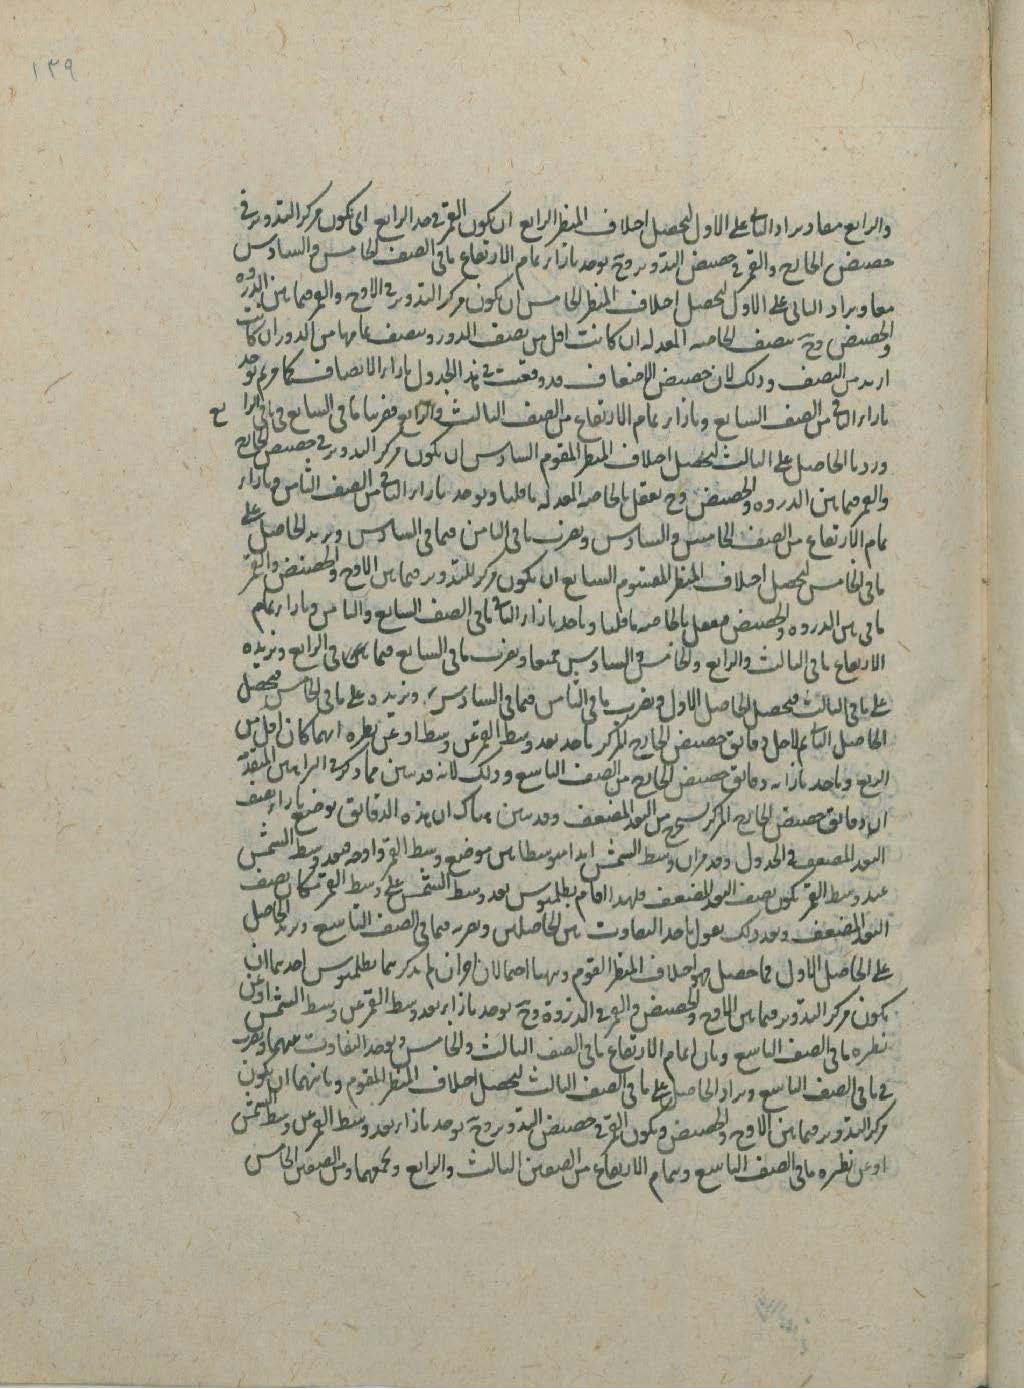 ١٣٩
والرابع معا ويزاد الثانى على الاول ليحصل اختلاف المنظر الرابع ان يكون القمر فى حد الرابع اى يكون مركز التدوير فى
حضيض الخارج والقمر فى حضيض التدوير وح يوجد بازاء تمام الارتفاع ما فى الصف الخامس والسادس
معا ويزاد الثانى على الاول ليحصل اختلاف المنظر الخامس ان يكون مركز التدوير فى الاوج والقمر فيما بين الذروة
والحضيض وح ينصف الخاصه المعدله ان كانت اقل من نصف الدور وينصف تمامها من الدور ان كانت
ازيد من النصف وذلك لان حضيض الاضعاف قد وقعت فى هذا الجدول بازاء الانصاف كما مر ثم يوجد
بازاء الثانى من الصف السابع وبازاء تمام الارتفاع من الصف الثالث والرابع فضربنا ما فى السابع فى ما فى الرابع
وزدنا الحاصل على الثالث ليحصل اختلاف المنظر المقوم السادس ان يكون مركز التدوير فى حضيض الخارج
والقمر فيما بين الذروه والحضيض وح يفعل بالخاصه المعدله ما قلنا ويوجد بازاء الثانى من الصف الثامن وبازاء
تمام الارتفاع من الصف الخامس والسادس ويضرب ما فى الثامن فيما فى السادس ويزيد الحاصل على
ما فى الخامس ليحصل اختلاف المنظر المقسوم السابع ان يكون مركز التدوير فيما بين الاوج والحضيض والقمر
ما فى بين الذروه والحضيض فيفعل بالخاصه ما قلنا وياخذ بازاء الثانى ما فى الصف السابع والثامن وبازاء تمام
الارتفاع ما فى الثالث والرابع والخامس والسادس جميعا ويضرب ما فى السابع فيما فى الرابع ونزيده
على ما فى الثالث فيحصل الحاصل الاول ويضرب ما فى الثامن فيما فى السادس ونزيده على ما فى الخامس فيحصل
الحاصل الثانى ثم لاجل دقائق حضيض الخارج المركز ياخذ بعد وسط القمر عن وسط او عن نظيره ايهما كان اقل من
الربع وياخذ بازائه دقائق حضيض الخارج من الصف التاسع وذلك لانه قد تبين مما ذكر فى البراهين المتقدمة
ان دقائق حضيض الخارج المركز يستخرج من البعد المضعف وقد تبين هناك ان هذه الدقائق توضع بازاء نصف
البعد المضعف فى الجدول وقد مر ان وسط الشمس ابدا متوسطا بين موضع وسط القمر واوجه فبعد وسط الشمس
عند وسط القمر يكون نصف البعد المضعف فلهذا اقام بطلميوس بعد وسط الشمس على وسط القمر مكان نصف
البعد المضعف وبعد ذلك يقول ياخذ التفاوت بين الحاصلين ويضربه فيما فى الصف التاسع ويزيد الحاصل
على الحاصل الاول فما حصل فهو اختلاف المنظر المقوم وههنا احتمالان اخران لم يذكرهما بطلميوس احدهما ان
يكون مركز التدوير فيما بين الاوج والحضيض والقمر فى الذروة وح يوجد بازاء بعد وسط القمر عن وسط الشمس او عن
نظيره ما فى الصف التاسع وبازاء تمام الارتفاع ما فى الصف الثالث والخامس ويوجد التفاوت بينهما ويضرب
فى ما فى الصف التاسع ويزاد الحاصل على ما فى الصف الثالث ليحصل اختلاف المنظر المقوم وثانيهما ان يكون
مركز التدوير فيما بين الاوج والحضيض ويكون القمر فى حضيض التدوير وح يوجد بازاء بعد وسط القمر عن وسط الشمس
او عن نظيره ما فى الصف التاسع وتمام الارتفاع من الصفين الثالث والرابع ونجمعهما ومن الصفين الخامس